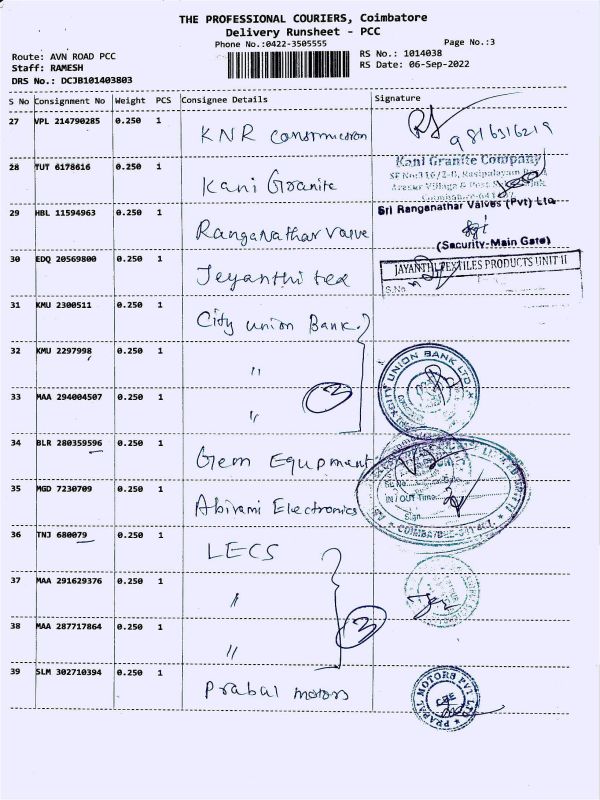 THE PROFESSIONAL COURIERS, Coimbatore
Delivery Runsheet - PCC
Phone No.:0422-3505555
Page No.:3
Route: AVN ROAD PCC
RS No.: 1014038
Staff: RAMESH
RS Date: 06-Sep-2022
DRS No.: DCJB101403803
S No Consignment No Weight PCS Consignee Details Signature
27 VPL 214790285 0.250 1 KNR Construction 9816316219
28 TUT 6178616 0.250 1 Kani Granite
Kani Granite Company
SF No:316/2-B, Rasipalayam
Arasur Village & Post
Coimbatore
29 HBL 11594963 0.250 1 Ranganathar Valve
Sri Ranganathar Valves (Pvt) Ltd
(Security-Main Gate)
30 EDQ 20569800 0.250 1 Jeyanthi tex
JAYANTHI TEXTILES PRODUCTS UNIT II
S.No
31 KMU 2300511 0.250 1 City union Bank
32 KMU 2297998 0.250 1 "
CITY UNION BANK LTD.
33 MAA 294004507 0.250 1 "
3
34 BLR 280359596 0.250 1 Gem Equpment
35 MGD 7230709 0.250 1 Abirami Electronics
SL No. Date
IN / OUT Time:
Sign
36 TNJ 680079 0.250 1 LECS
37 MAA 291629376 0.250 1 "
38 MAA 287717864 0.250 1 "
3
39 SLM 302710394 0.250 1 Prabal motors
PRABAL MOTORS PVT LTD
CBE